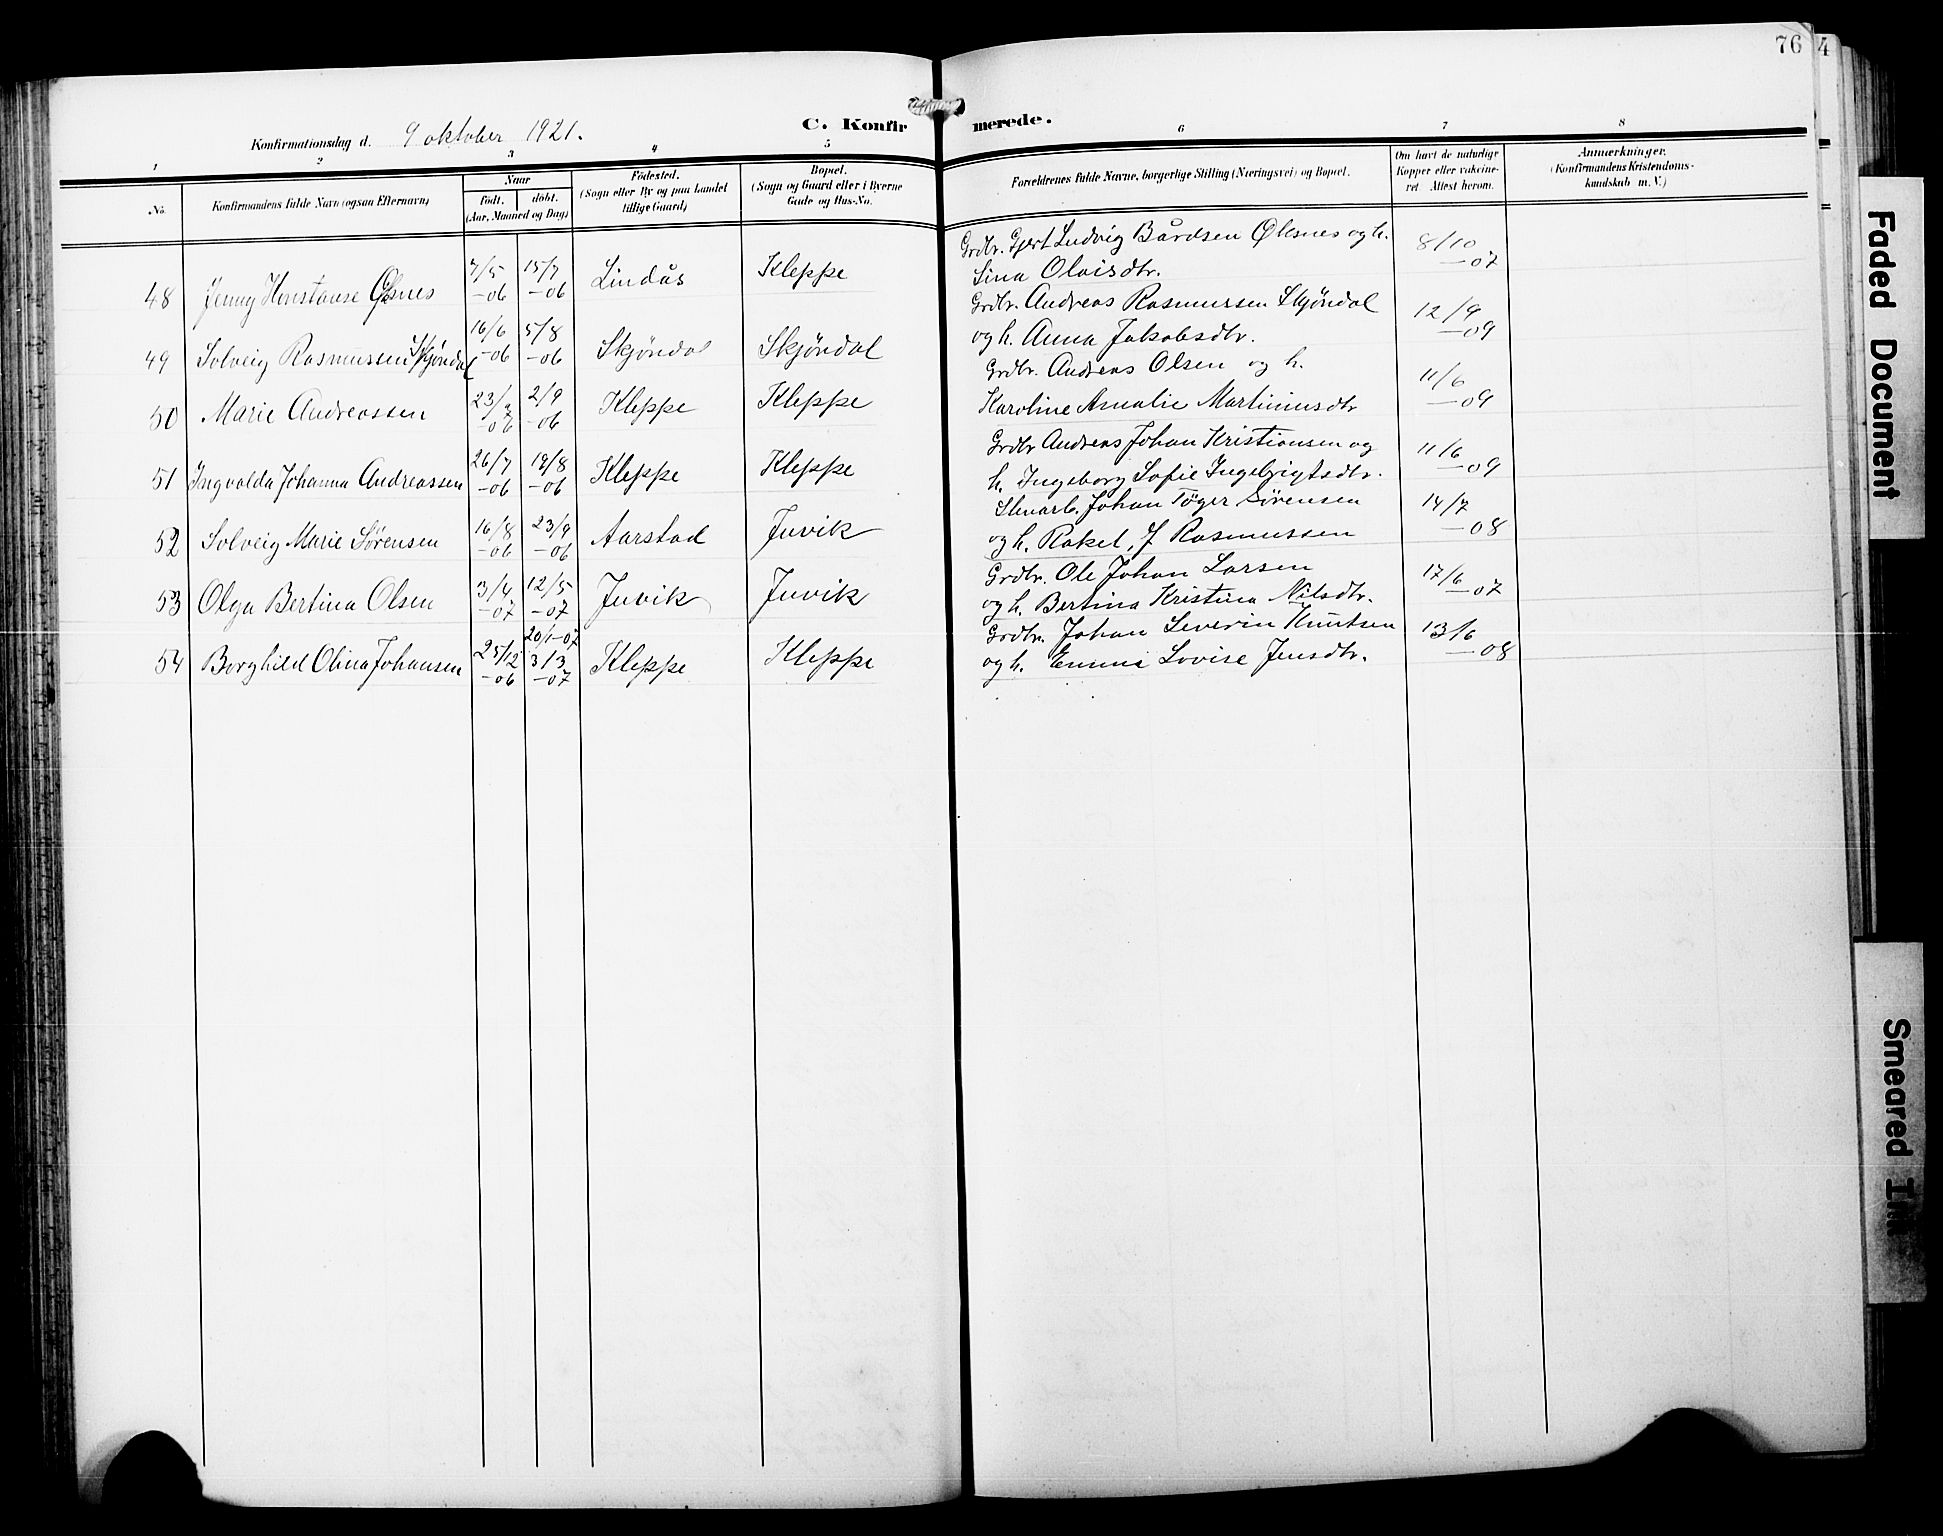 76
4
C. Konfirmerede.
Konfirmationsdag d. 9 oktober 1921.
1 2 3 4 5 6 7 8
No.
Konfirmandens fulde Navn (ogsaa Efternavn)
Naar
født. døbt.
(Aar, Maaned og Dag)
Fødested.
(Sogn eller By og paa Landet
tillige Gaard)
Bopæl.
(Sogn og Gaard eller i Byerne
Gade og Hus-No.
Forældrenes fulde Navne, borgerlige Stilling (Næringsvei) og Bopæl.
Om havt de naturlige
Kopper eller vakcine-
ret. Attest herom.
Anmærkninger.
(Konfirmandens Kristendoms-
kundskab m. V.)
48 Jenny Konstanse Øksnes 7/5 -06 15/7 -06 Lindås Kleppe
Grdbr. Gjert Ludvig Bårdsen Øksnes og h.
Sina Olaisdtr.
8/10 -07
49 Solveig Rasmussen Skjøndal 16/6 -06 5/8 -06 Skjøndal Skjøndal
Grdbr. Andreas Rasmussen Skjøndal
og h. Anna Jakobsdtr.
12/9 -09
50 Marie Andreassen 23/7 -06 2/9 -06 Kleppe Kleppe
Grdbr. Andreas Olsen og h.
Karoline Amalie Martinusdtr
11/6 -09
51 Ingvalda Johanna Andreassen 26/7 -06 19/8 -06 Kleppe Kleppe
Grdbr Andreas Johan Kristiansen og
h. Ingeborg Sofie Ingebrigtsdtr.
11/6 -09
52 Solveig Marie Sørensen 16/8 -06 23/9 -06 Aarstad Juvik
Johan Tøger Sørensen
og h. Rakel, J Rasmussen
14/7 -08
53 Olga Bertina Olsen 3/4 -07 12/5 -07 Juvik Juvik
Grdbr. Ole Johan Larsen
og h. Bertina Kristina Nilsdtr.
17/6 -07
54 Borghild Olina Johansen 25/12 -06 20/1-07 3/3 -07 Kleppe Kleppe
Grdbr. Johan Severin Knutsen
og h. Emma Lovise Jensdtr.
13/6 -08
Faded Document
Smeared